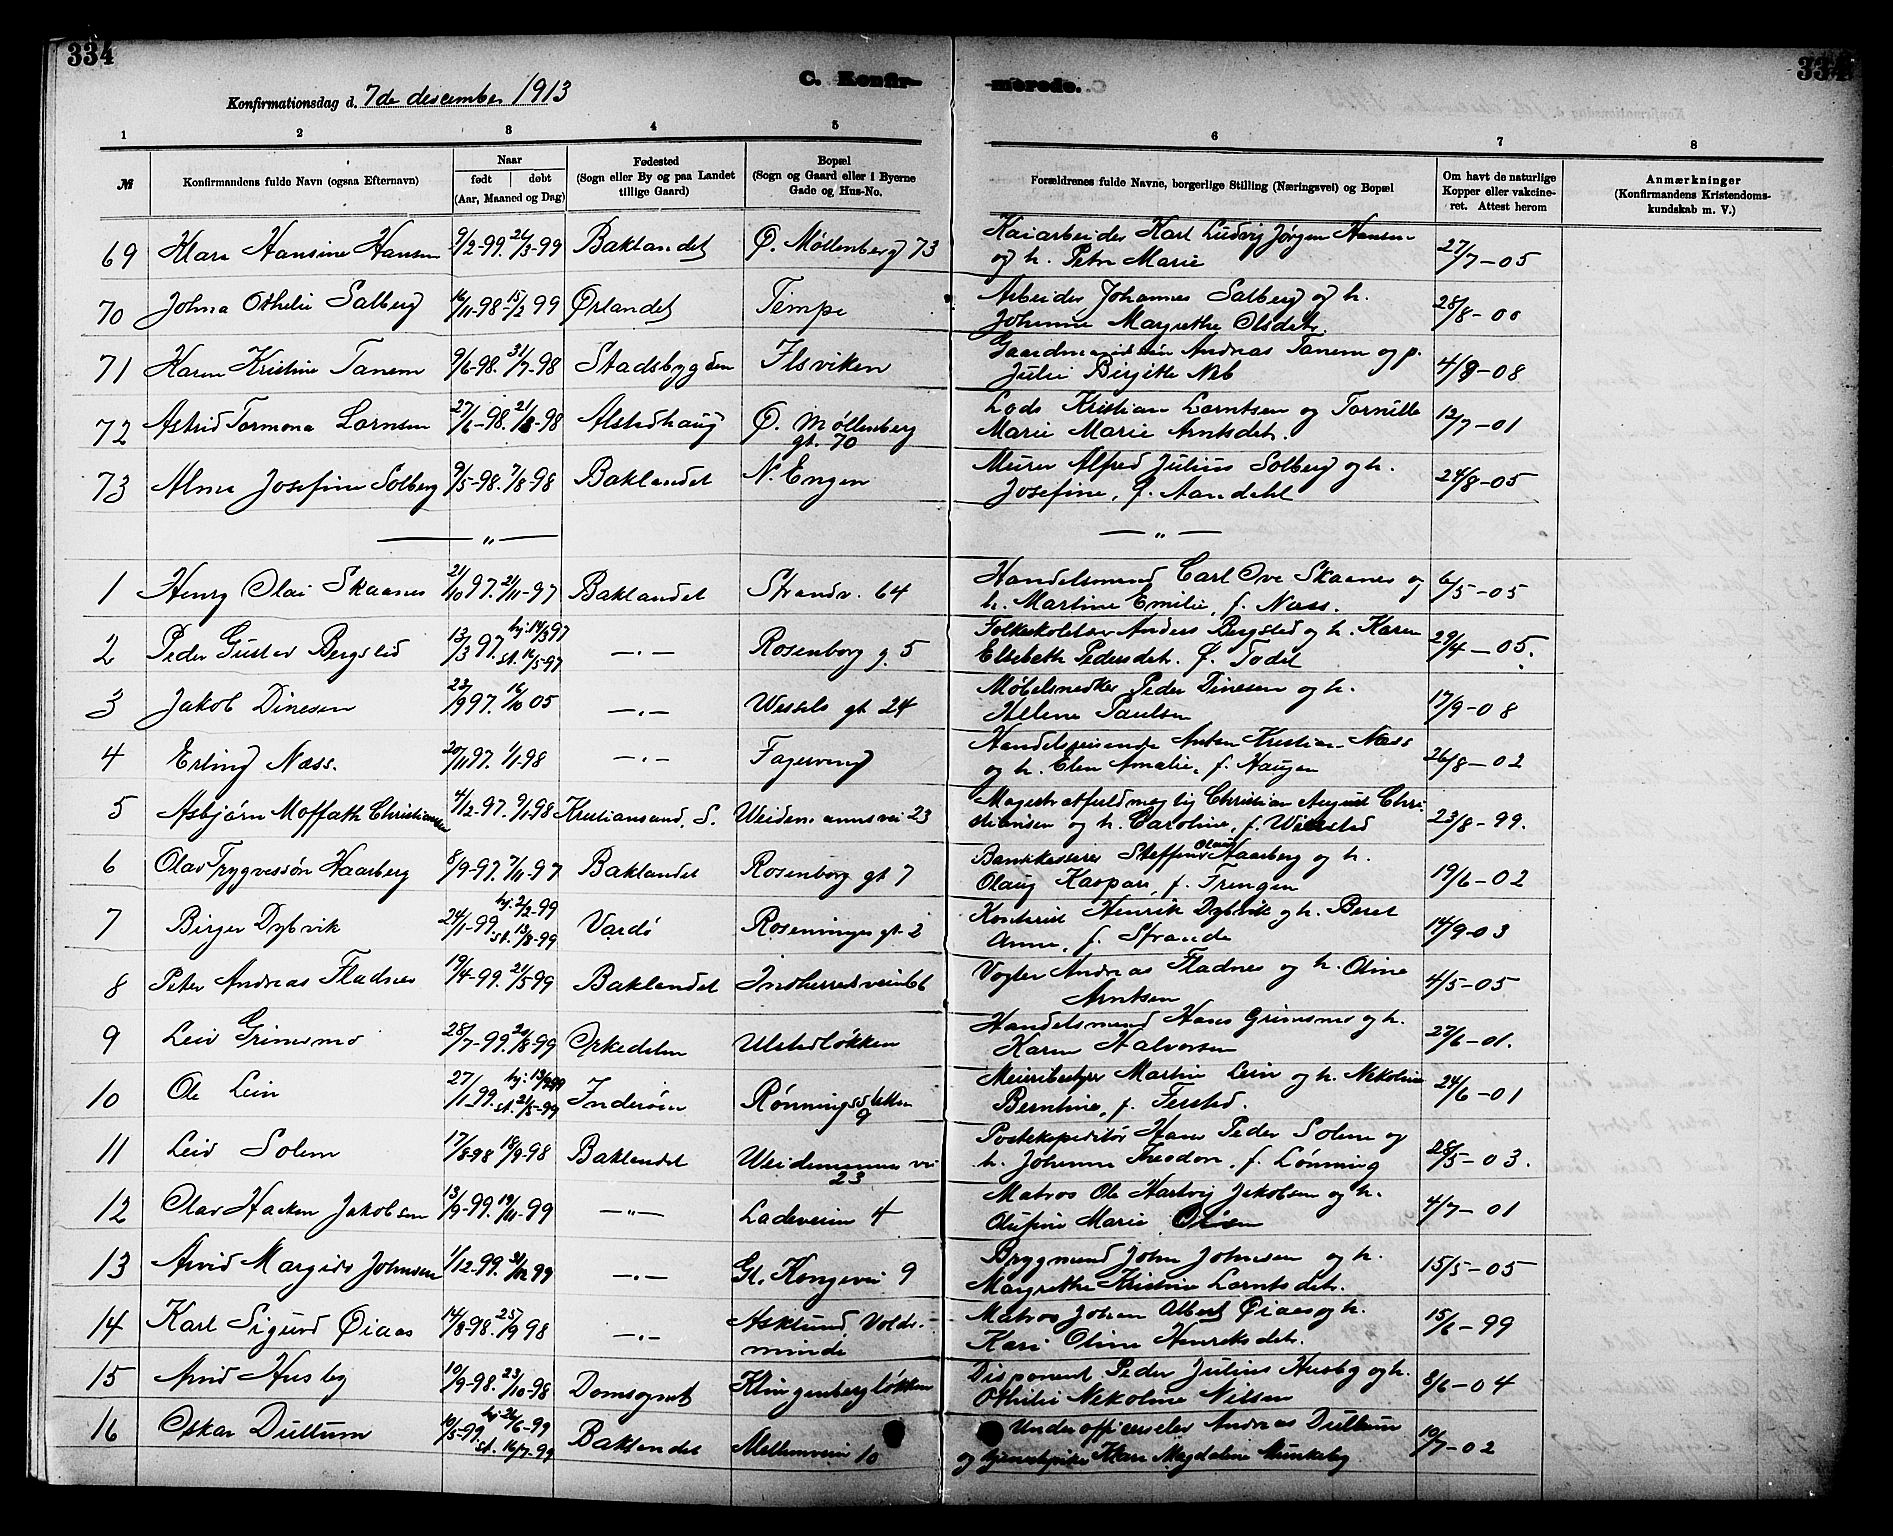 334
334
C. Konfir-
merede.
Konfirmationsdag d. 7de desember 1913
1 2 3 4 5 6 7 8
№ Konfirmandens fulde Navn (ogsaa Efternavn) Naar født døbt (Aar, Maaned og Dag) Fødested (Sogn eller By og paa Landet tillige Gaard) Bopæl (Sogn og Gaard eller i Byerne Gade og Hus-No.) Forældrenes fulde Navne, borgerlige Stilling (Næringsvei) og Bopæl Om havt de naturlige Kopper eller vakcineret. Attest herom Anmærkninger (Konfirmandens Kristendomskundskab m. V.)
69 Klara Hansine Hansen 9/2-99. 26/3-99 Baklandet Ø. Møllenberg 73 Kaiarbeider Karl Ludvig Jørgen Hansen 27/7-05
og h. Petra Marie
70 Johna Othelie Salberg 16/11-98 15/2 99 Ørlandet Tempe Arbeider Johannes Salberg og h. 28/8-00
Johanna Margrethe Olsdtr.
71 Karen Kristine Tanem 9/6-98. 31/7-98 Stadsbygden Ilsviken Andreas Tanem og p. 4/9-08
Julie Birgitte
72 Astrid Tormona Lornsen 27/6-98. 21/8-98 Alstadhaug Ø. Møllenberg Lods Kristian Larntsen og 12/7-01
gt. 70 Marie Marie Arntsdtr.
73 Alma Josefine Solberg 9/5-98. 7/8-98 Baklandet N. Engen Murer Alfred Julius Solberg og h. 24/8-05
Josefine, f. Aandahl
— „ — — „ —
1 Henry Olai Skaanes 21/10 97. 21/11-97 Baklandet Strandv. 64 Handelsmand Carl Ove Skaanes og 6/5-05
h. Martine Emilie, f. Næss.
2 Peder Gustav Bergsted 13/3 97. hj. 14/3 97 —.— Rosenborg g. 5 Folkeskolelærer Anders Bergsted og h. Karen 29/4-05.
st. 16/5-97 Elsebeth Pedersdtr. Ø. Todal
3 Jakob Dinesen 23/9 97. 16/10 05 —.— Wessels gt 24 Møbelsnedker Peder Dinesen og h. 17/9-08
Helene Paulsen
4 Erling Næss. 20/11 97. 1/1-98 —.— Fagerveng Handelsreisende Anton Kristian Næss 26/8-02
og h. Elen Amalie, f. Haugen
5 Asbjørn Moffath Christiansen 4/12-97. 9/1-98 Kristiansand, S. Weidemannsvei 23 Magistratfuldmægtig Christian August Chri- 23/8-99.
stiansen og h. Caroline, f.
6 Olav Trygvessøn Haarberg 8/9-97. 7/11-97 Baklandet Rosenborg gt 7 Bankkasserer Steffen Olaus Haarberg og h. 19/6-02
Olaug Kaspara, f.
7 Birger Dybvik 24/1-99. hj. 2/2-99 Vardö Roseninges gt. 2 Kontorist Henrik Dybvik og h. Beret 14/9-03
st. 13/8-99 Anna, f. Strande
8 Peter Andreas Fladnes 19/4-99. 21/5 99 Baklandet Indherredsveien 66 Vogter Andreas Fladnes og h. Oline 4/5-05
Arntsen
9 Leiv Grimsmo 28/7-99. 20/8-99 Orkedalen Ulstadløkken Handelsmand Hans Grimsmo og h. 27/6-01.
Karen Halvorsen
10 Ole Lein 27/1-99. hj. Inderøen Rønningsletten Meieribestyr Martin Lein og h. Nekoline 24/6-01
st. 21/5-99 9 Berntine, f.
11 Leiv Solem 17/8-98 18/9-98 Baklandet Weidemanns vei Postekspeditør Hans Peder Solem og 28/5-03.
23 h. Johanne Theodora, f. Lønning
12 Olav Haakon Jakobsen 13/9-99. 19/11-99 —„— Ladeveien 4 Matros Ole Hartvig Jakobsen og h. 4/7-01
Olufine Marie Olsen
13 Arvid Margido Johnsen 1/12-99. 31/12 99 —.— Gl. Kongevei 9 Brygmand John Johnsen og h. 15/5-05
Margrethe Kristine Larntsdtr.
14 Karl Sigurd Øiaas 14/8-98. 25/9 98 —.— Asklund Volds- Matros Johan Albert Øiaas og h. 15/6-99
minde Kari Oline Henriksdtr.
15 Arvid Husby 10/9-98. 23/10-98 Domsognet Klingenbergløkken Disponent Peder Julius Husby og h. 8/6-04
Othilie Nekoline Nilsen
16 Oskar Dullum 10/5-99. hj. 26/6-99 Baklandet Mellemveien 10 Underofficerselev Andreas Dullum 10/7-02
st. 16/7-99 og tjenestepike Klara Magdalene Munkeby